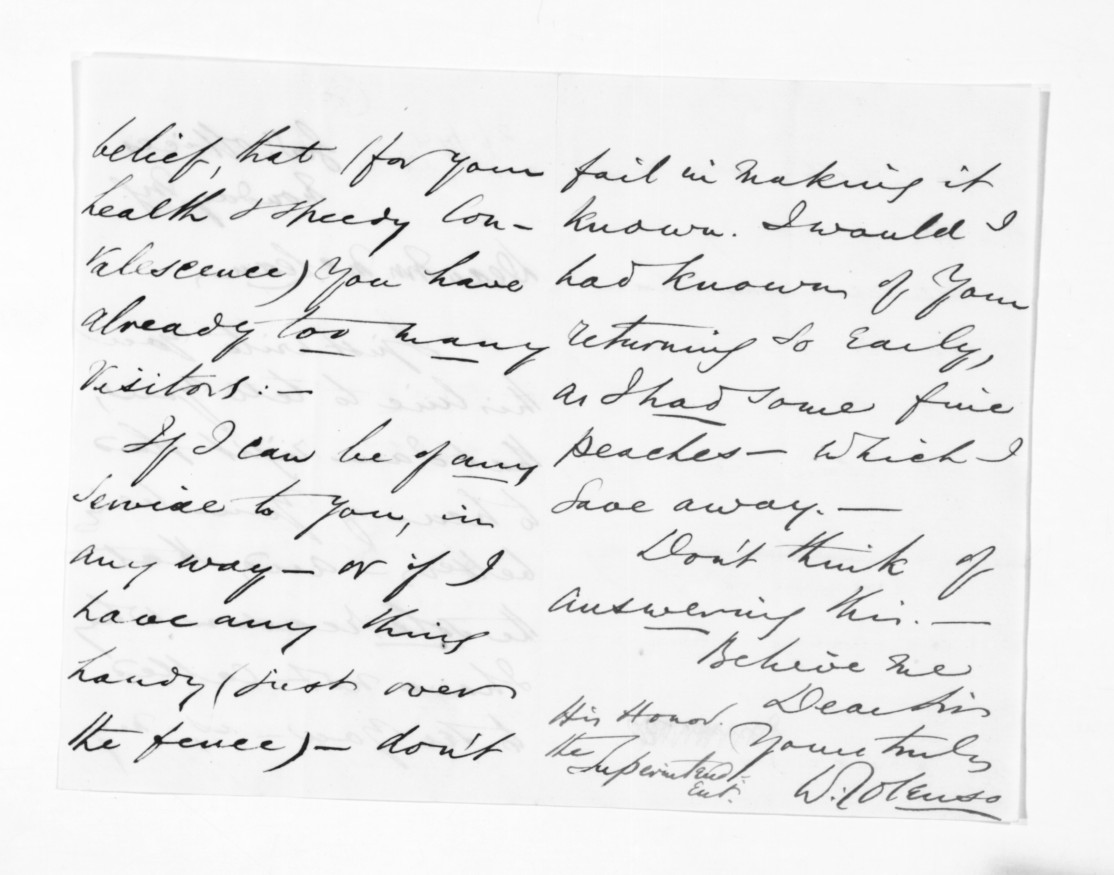 belief, that (for your
health & speedy Con-
valescence) you have
already too many
Visitors:—
If I can be of any
service to you, in
any way— or if I
have any thing
handy (just over
the fence)— don't
fail in making it
known. I would I
had known of Your
returning so Early,
as I had some fine
peaches— which I
gave away.—
Don't think of
answering this.—
Believe me
Dear Sir
Yours truly
W. Colenso
His Honor.
the
Superintend-
ent.